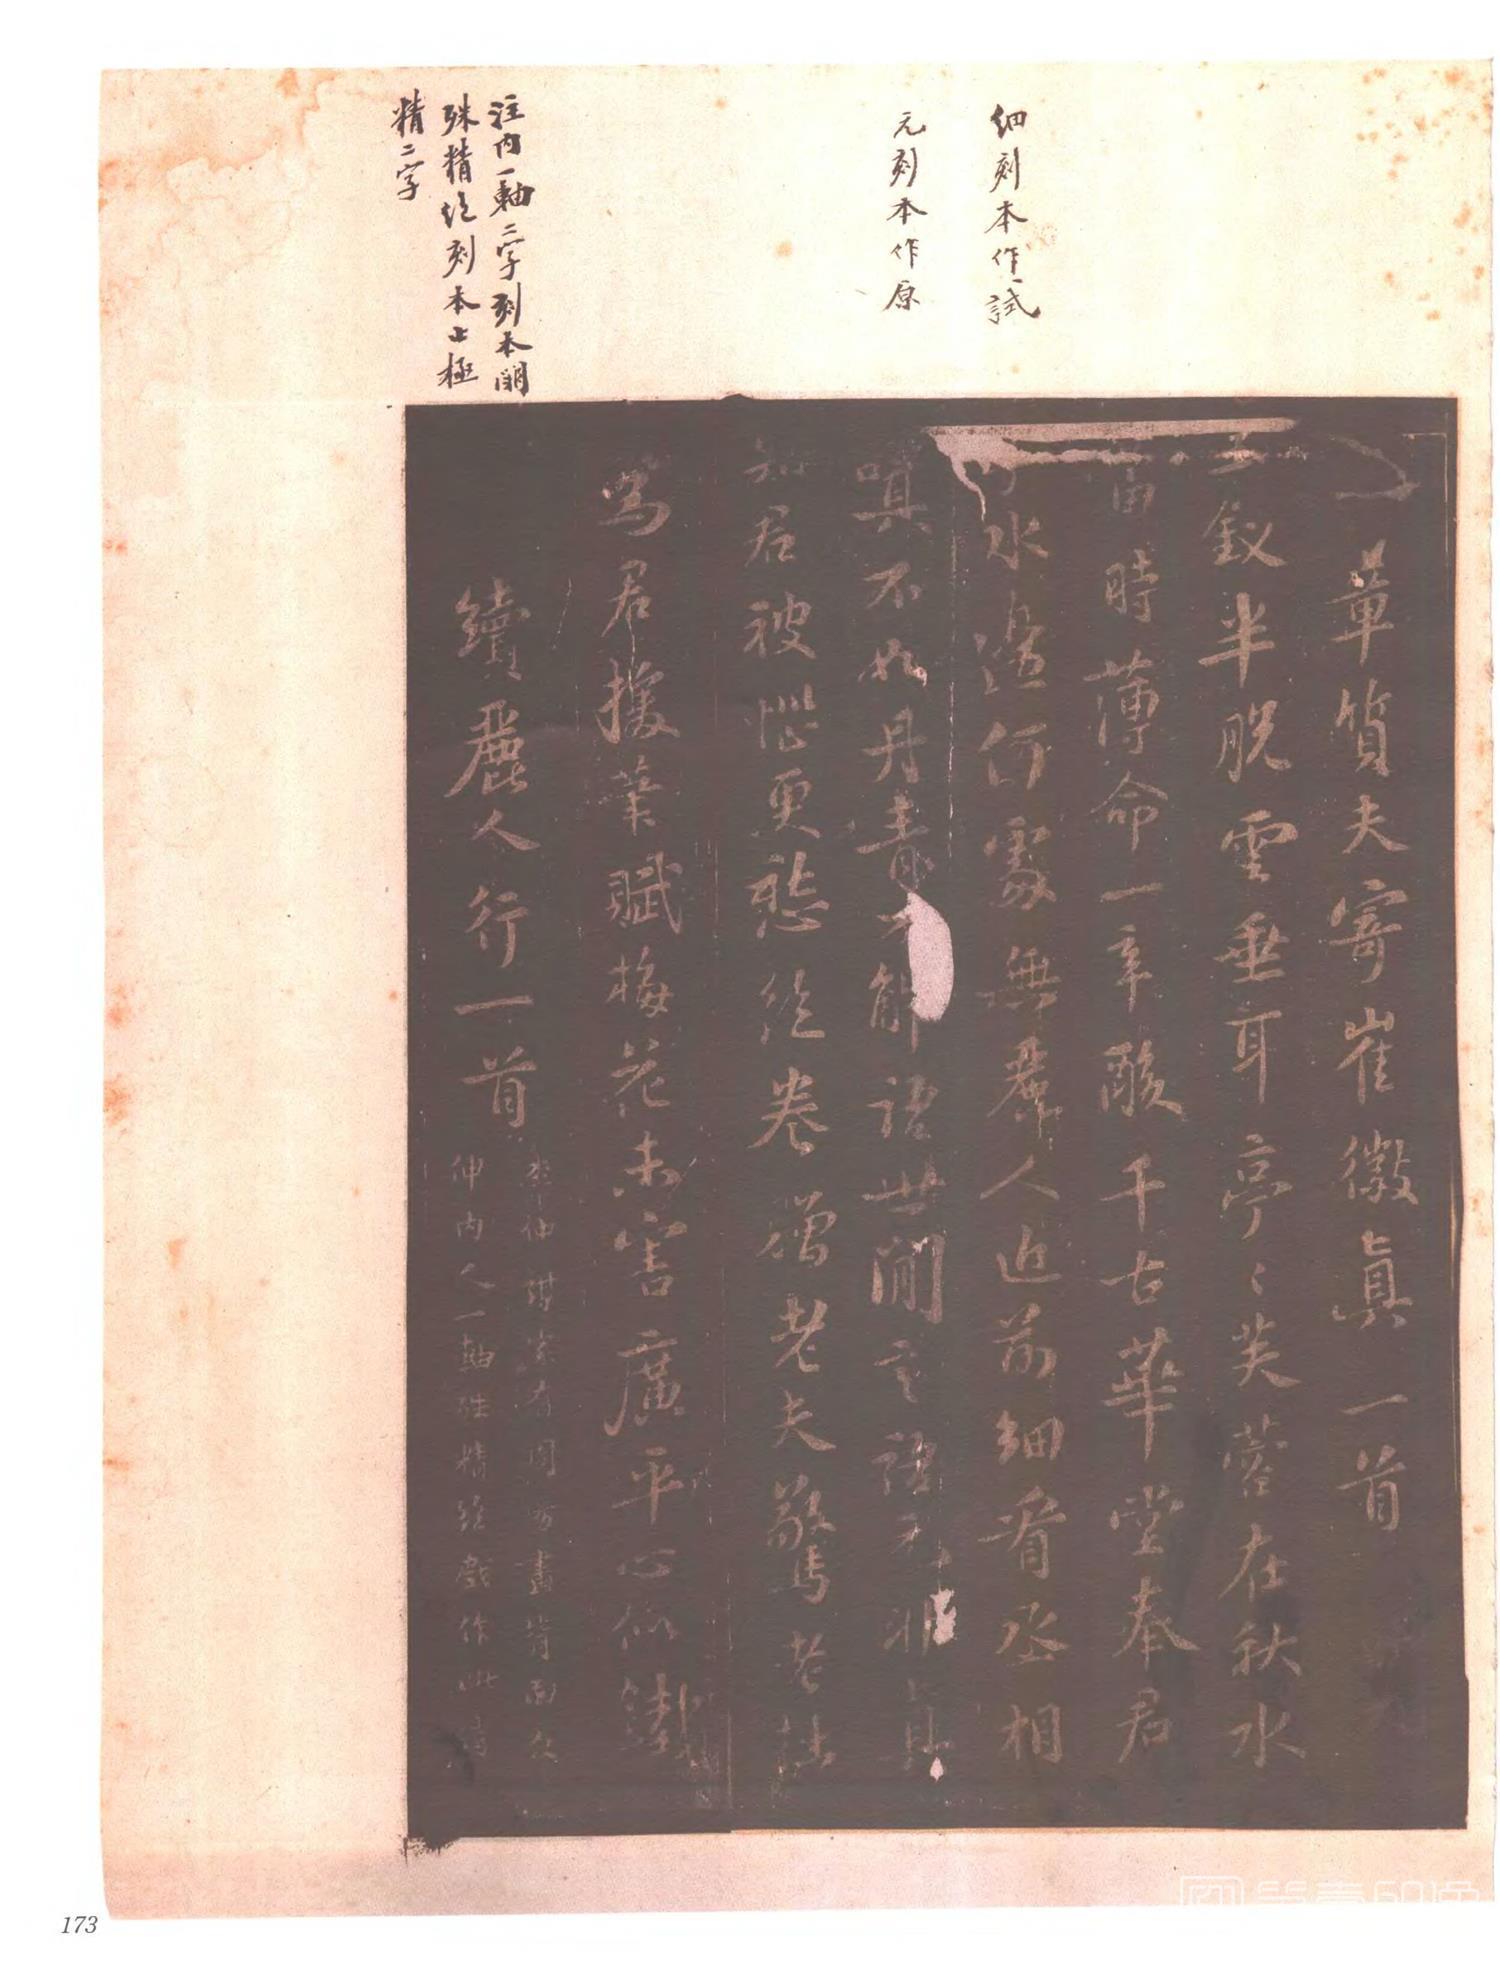 細刻本作試
元刻本作原
注內一軸二字刻本闕
殊精絕刻本止極
精二字
章質夫寄崔徽真一首
玉釵半脫雲垂耳亭〻芙蓉在秋水
當時薄命一辛酸千古華堂奉君
水邊何處無麗人近前細看丞相
嗔不如丹青不解語世間言語元非真
知君被惱更愁絕卷贈老夫驚老拙
為君援筆賦梅花未害廣平心似鐵
續麗人行一首
李仲謀家有周昉畫背面欠
伸內人一軸殊精絕戲作此詩
173